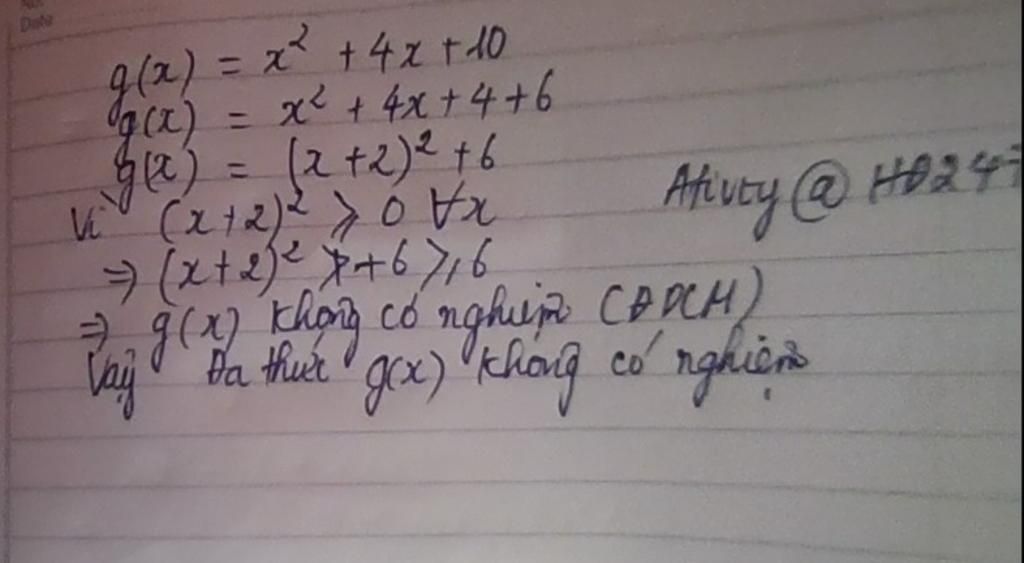 Date
g(x) = x² + 4x + 10
g(x) = x² + 4x + 4 + 6
g(x) = (x + 2)² + 6
Vì (x + 2)² ⩾ 0 ∀x
⇒ (x + 2)² + 6 ⩾ 6
⇒ g(x) không có nghiệm (ĐPCM)
Vậy Đa thức g(x) không có nghiệm
@ HĐ247